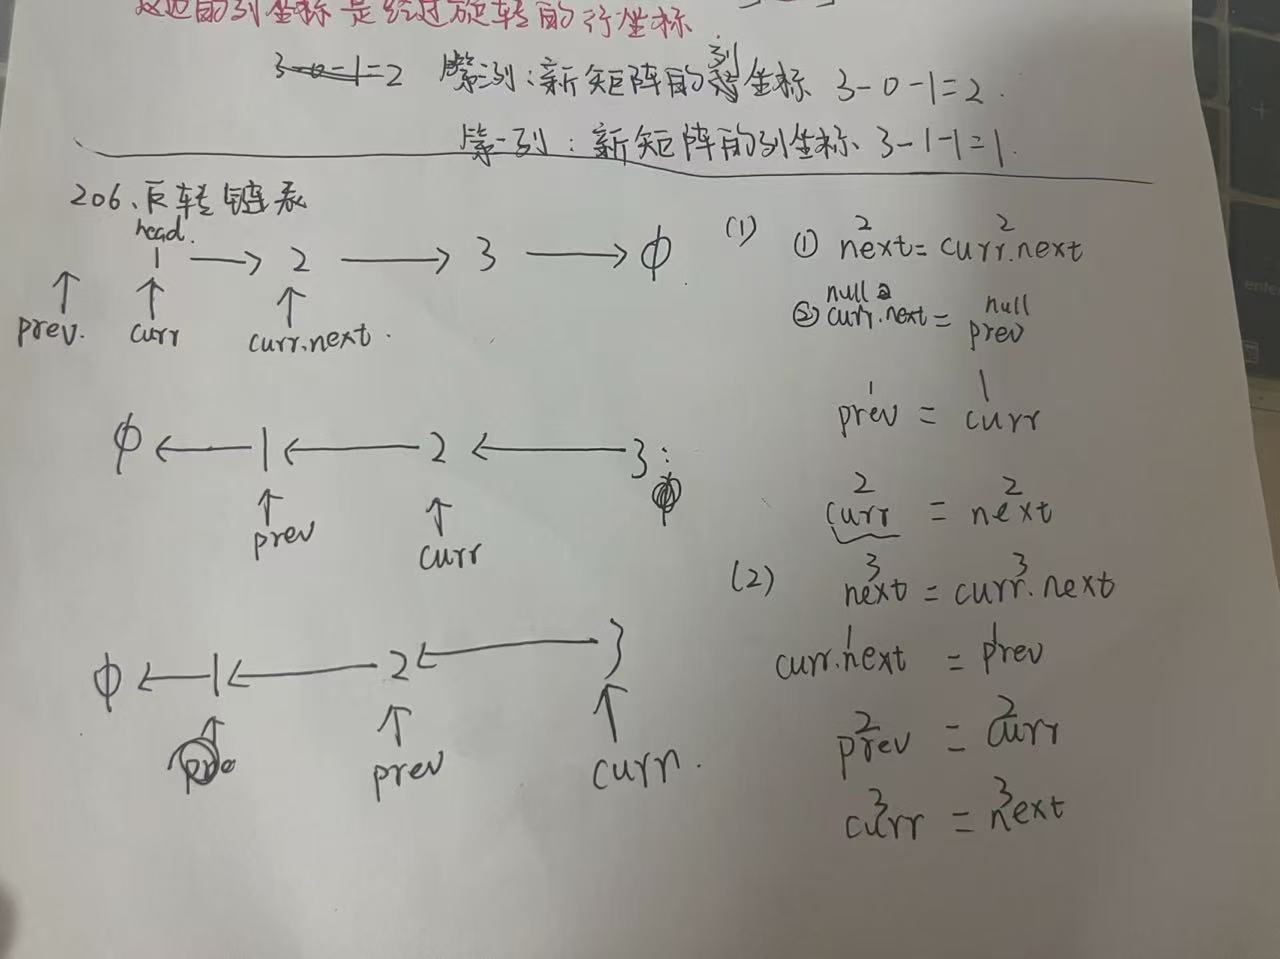 这边的列坐标是经过旋转的行坐标.
3-0-1=2 第三列:新矩阵的列坐标 3-0-1=2.
第二列:新矩阵的列坐标 3-1-1=1.
206、反转链表
head.
1 → 2 → 3 → ∅
prev. curr curr.next.
∅ ← 1 ← 2 ← 3:
prev curr
∅ ← 1 ← 2 ← 3
prev curr.
(1) ① next = curr.next
2 2
② curr.next = prev
null 2 null
prev = curr
1 1
curr = next
2 2
(2) next = curr.next
3 3
curr.next = prev
1 1
prev = curr
2 2
curr = next
3 3
enter